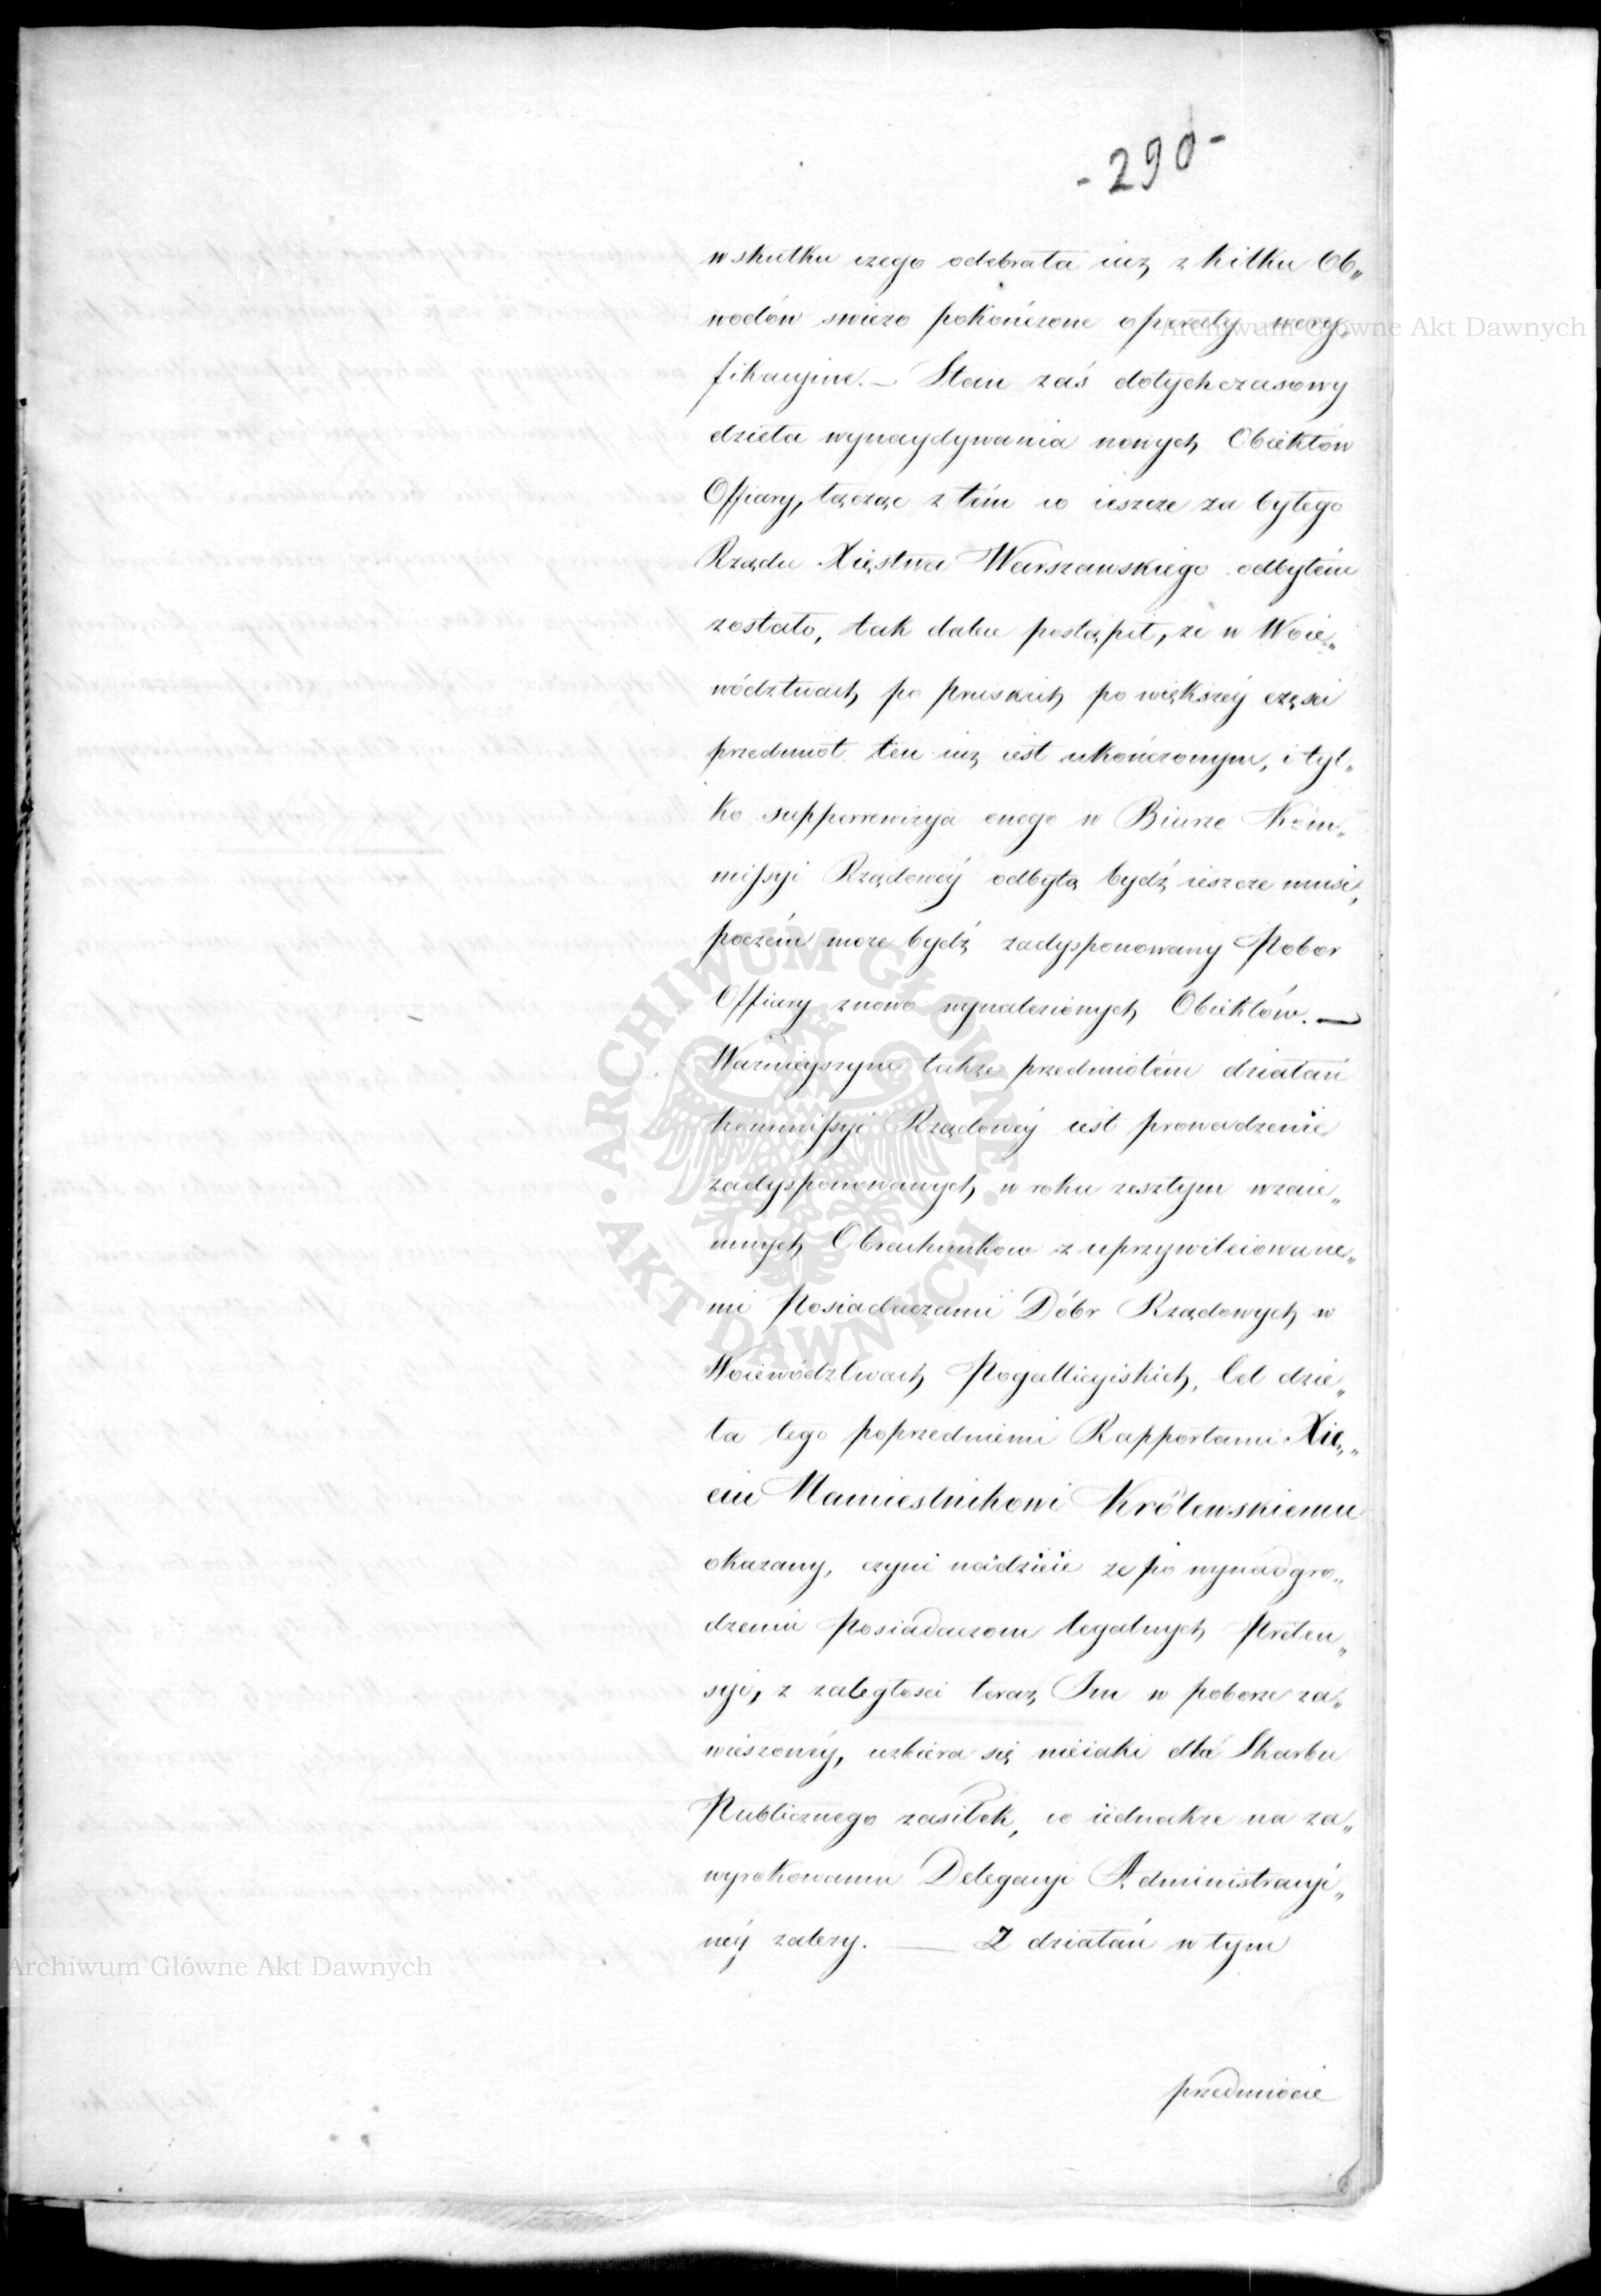 - 290 -
w skutku czego odebrała iuż z kilku Ob„
wodów swieżo pokończone operaty wery„
fikacyine. — Stan zaś dotychczasowy
dzieła wynaydywania nowych Obiektów
Offiary, łącząc z tém co ieszcze za byłego
Rządu Xięstwa Warszawskiego odbytém
zostało, tak dalece postąpił, że w Woie„
wództwach po pruskich po większéy części
przedmiot ten iuż iest ukończonym, i tyl„
ko supperrewizya onego w Biurze Kom„
missyi Rządowéy odbytą bydź ieszcze musi,
poczém może bydź zadysponowany Pobor
Offiary z nowo wynalezionych Obiektów. —
Ważnieyszym także przedmiotém działań
Kommissyi Rządowéy iest prowadzenie
zadysponowanych w roku zeszłym wzaie„
mnych Obrachunkow z uprzywileiowane„
mi Posiadaczami Dóbr Rządowych w
Woiewództwach Pogallicyiskich, Cel dzie„
ła tego poprzedniemi Rapportami Xię„
ciu Namiestnikowi Królewskiemu
okazany, czyni nadzieie że po wynadgro„
dzeniu Posiadaczom legalnych Preten„
syi, z zaległosci teraz Im w poborze za„
wieszonéy, uzbiera się nieiaki dla Skarbu
Publicznego zasiłek, co iednakże na za„
wyrokowaniu Delegacyi Administracyi„
néy zależy. — Z działań w tym
przedmiocie
Archiwum Główne Akt Dawnych
Archiwum Główne Akt Dawnych
ARCHIWUM GŁÓWNE · AKT DAWNYCH ·